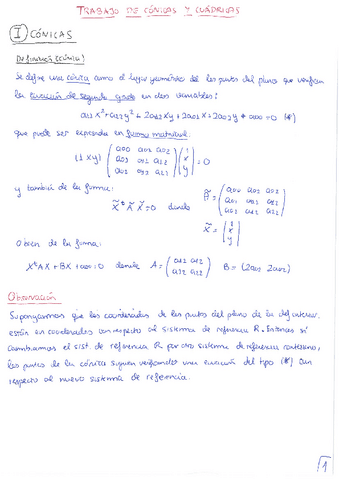 TRABAJO DE CÓNICAS Y CUÁDRICAS
I CÓNICAS
Definición (cónica)
Se define una cónica como el lugar geométrico de los puntos del plano que verifican
la ecuación de segundo grado en dos variables:
a11x²+a22y²+2a12xy+2a01x+2a02y+a00=0 (*)
que puede ser expresada en forma matricial:
(1 x y) (a00 a01 a02 / a01 a11 a12 / a02 a12 a22) (1 / x / y) = 0
y también de la forma:
X̃ᵗ Ã X̃ = 0 donde
X̃ = (1 / x / y)
O bien de la forma:
XᵗAX + BX + a00 = 0 donde A = (a11 a12 / a12 a22) B = (2a01 2a02)
Observación
Supongamos que las coordenadas de los puntos del plano de la def. anterior
están en coordenadas con respecto al sistema de referencia R. Entonces si
cambiamos el sist. de referencia R por otro sistema de referencia cartesiano,
los puntos de la cónica siguen verificando una ecuación del tipo (*) con
respecto al nuevo sistema de referencia.
1